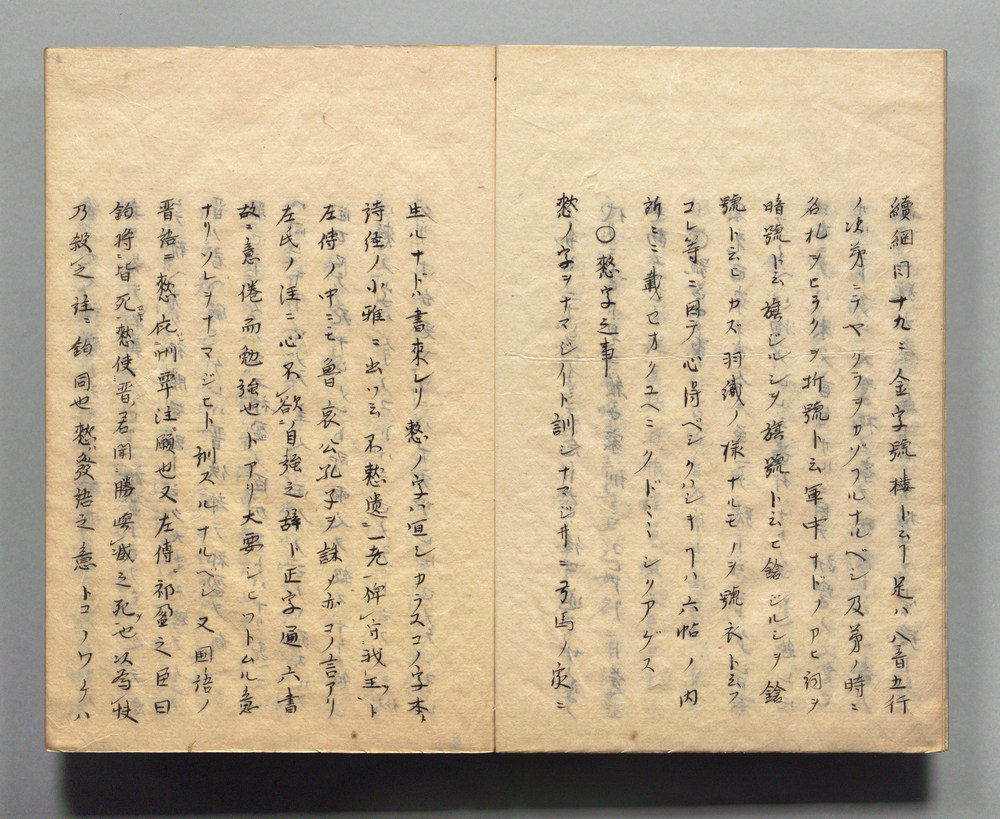 續綱目十九ニ金字號樓ト云フ是ハ八音五行
ノ次第ニテヤクラヲカゾフルナルベシ及第ノ時ニ
名札ヲヒラクヲ折號ト云軍中ナドノアヒ詞ヲ
暗號ト云旗ジルシヲ旗號ト云ヒ鎗ジルシヲ鎗
號ト云ヒカズ羽織ノ様ナルモノヲ號衣ト云フ
コレ等ニ因テ心得ベシクハシキヿハ六帖ノ内
所ニミ載セオクユヘニクドミミシクアゲス
○憖字之事
憖ノ字ヲナマジイト訓シナマジ井ニ弓馬ノ家ニ
生ルナドハ書來レリ憖ノ字ハ宜シカラスコノ字本
詩經ノ小雅ニ出ツ云不憖遺一老俾守我王ト
左傳ノ中ニモ魯哀公孔子ヲ誄ノ亦コノ言アリ
左氏ノ注ニ心不欲自強之辭ト正字通六書
故ニ意倦而勉強也トアリ大要シヒツトムル意
ナリソレヲナマジヒト訓ズルナルベシ又国語ノ
晋語ニ憖庇州犂注願也又左傳祁盈之臣曰
鈞將皆死憖使吾君聞勝與臧之死也以為快
乃殺之註ニ鈞同也憖發語之意トコノワケハ